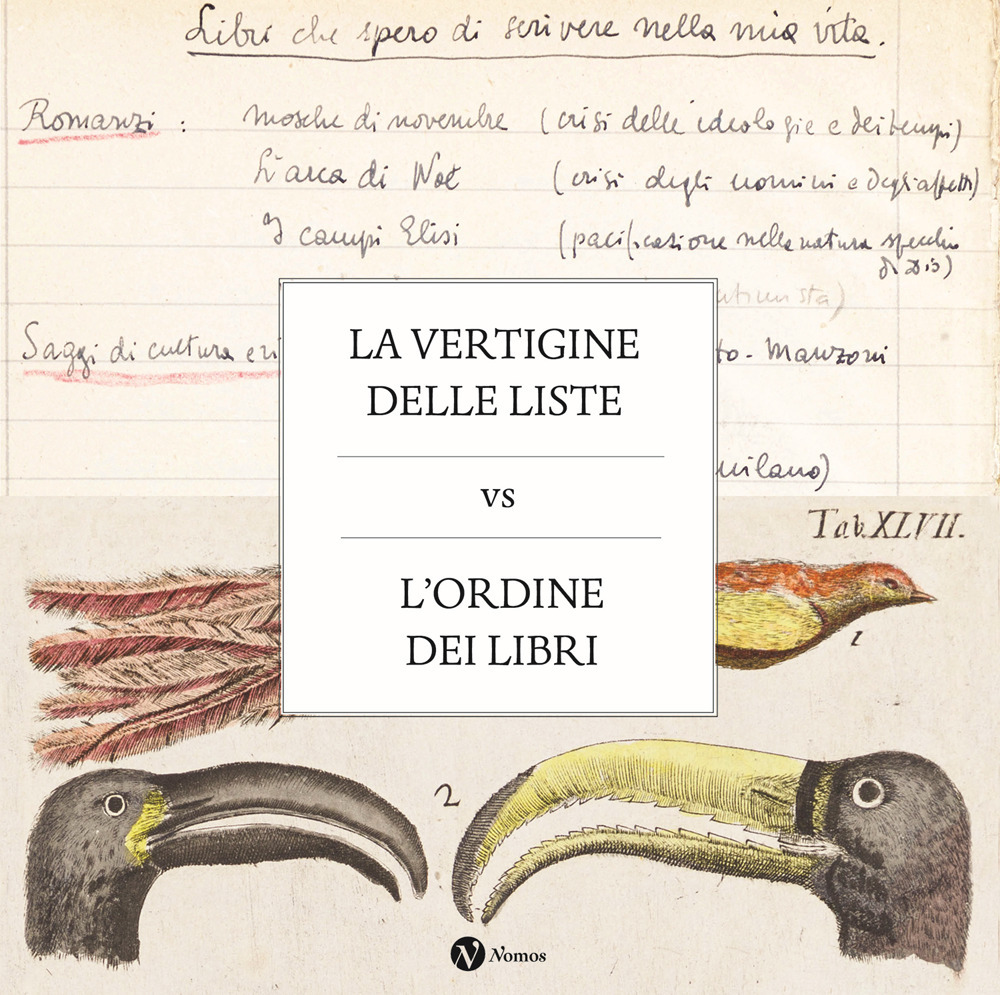 Libri che spero di scrivere nella mia vita.
Romanzi : mosche di novembre (crisi delle ideologie e dei tempi)
L'arca di Noè (crisi degli uomini e degli affetti)
I campi Elisi (pacificazione nella natura specchio
di Dio)
Saggi di cultura to - Manzoni
milano)
LA VERTIGINE
DELLE LISTE
vs
L'ORDINE
DEI LIBRI
Tab. XLVII.
1
2
N Nomos